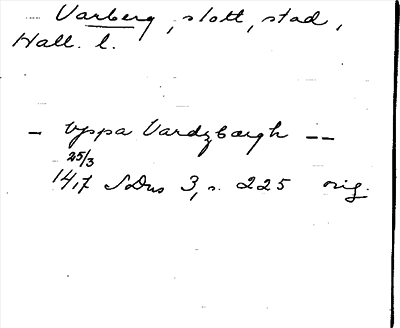 Varberg, slott, stad,
Hall. l.
– vppa Vardzbærgh – –
25/3
1417 SDns 3, s. 225 orig.